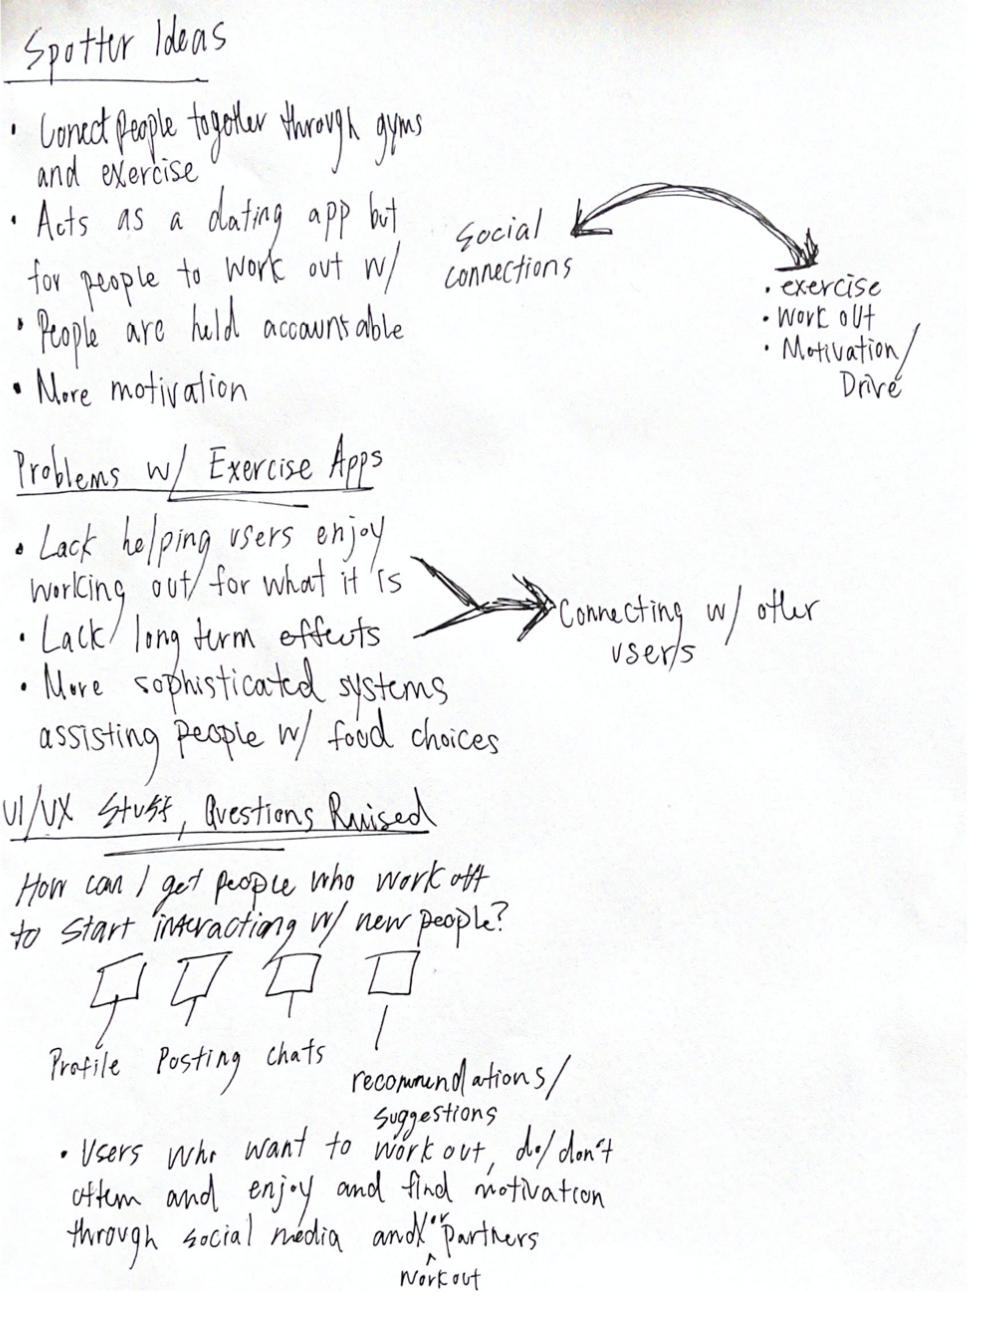 Spotter Ideas
• Conect people together through gyms
and exercise
• Acts as a dating app but
for people to work out w/
• People are held accountable
• More motivation
Social
connections
• exercise
• work out
• Motivation/
Drive
Problems w/ Exercise Apps
• Lack helping users enjoy
working out/ for what it is
• Lack/ long term effects
• More sophisticated systems
assisting people w/ food choices
Connecting w/ other
users
UI/UX Stuff, Questions Raised
How can I get people who work out
to start interacting w/ new people?
Profile Posting chats
recommendations/
suggestions
• Users who want to work out, do/don't
often and enjoy and find motivation
through social media and/or partners
^
workout